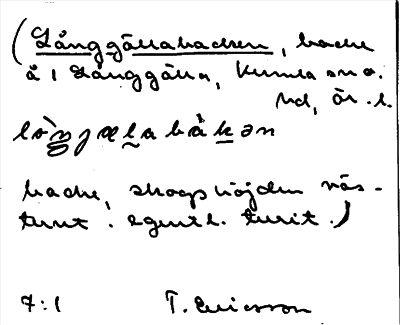 (Långgällabacken, backe
å 1 Långgälla, Kumla sn o.
hd, Ör. l.
lòŋjælabåkən
backe, skogshöjden väs-
ternt. egentl. territ.)
7:1 T. Ericsson